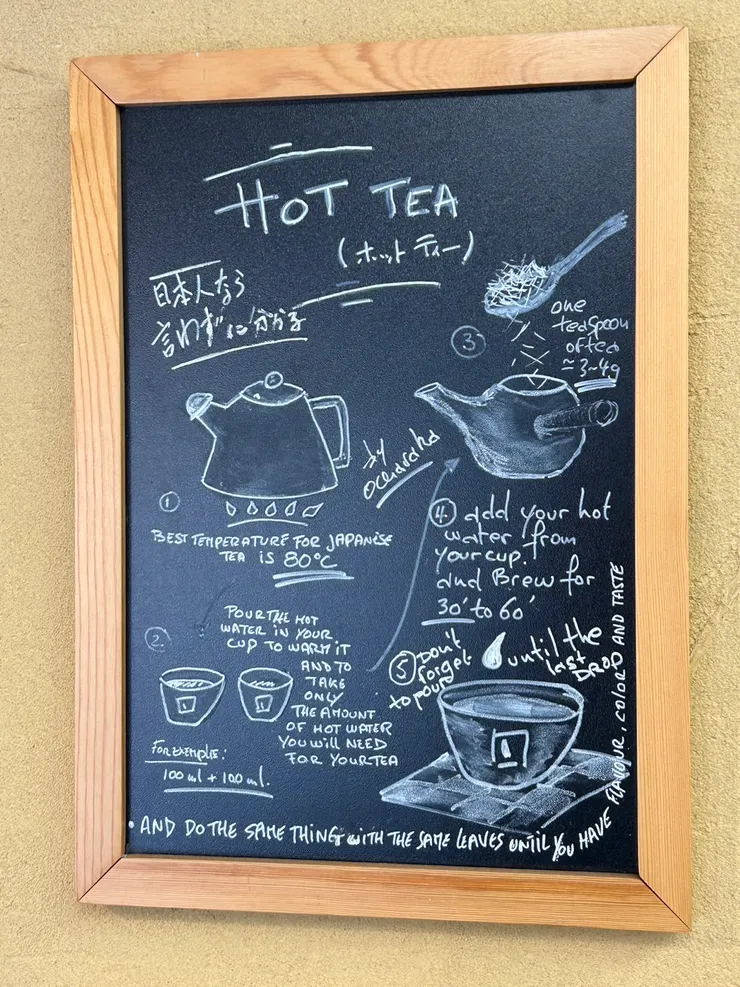 HOT TEA
(ホット ティー)
日本人なら
言わずに分かる
①
BEST TEMPERATURE FOR JAPANESE
TEA IS 80°C
②
POUR THE HOT
WATER IN YOUR
CUP TO WARM IT
AND TO
TAKE
ONLY
THE AMOUNT
OF HOT WATER
YOU WILL NEED
FOR YOUR TEA
FOR EXEMPLE:
100 ml + 100 ml.
③
one
teaspoon
of tea
≃ 3~4g
④ add your hot
water from
your cup.
and Brew for
30' to 60'
⑤ Don't
forget
to pour
until the
last DROP
• AND DO THE SAME THING WITH THE SAME LEAVES UNTIL YOU HAVE FLAVOUR, COLOR AND TASTE